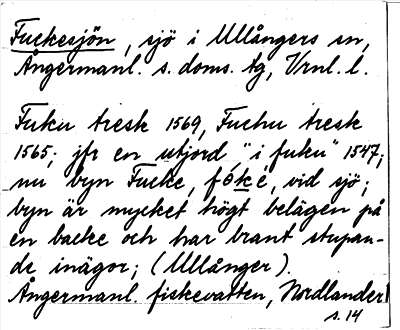 Fuckesjön, sjö i Ullångers sn,
Ångermanl. s. doms. tg, Vrnl. l.
Fuku tresk 1569, Fuchu tresk
1565; jfr en utjord "i fuku" 1547;
nu byn Fucke, fo̊ké, vid sjö;
byn är mycket högt belägen på
en backe och har brant stupan-
de inägor; (Ullånger).
Ångermanl. fiskevatten, Nordlander
s. 14